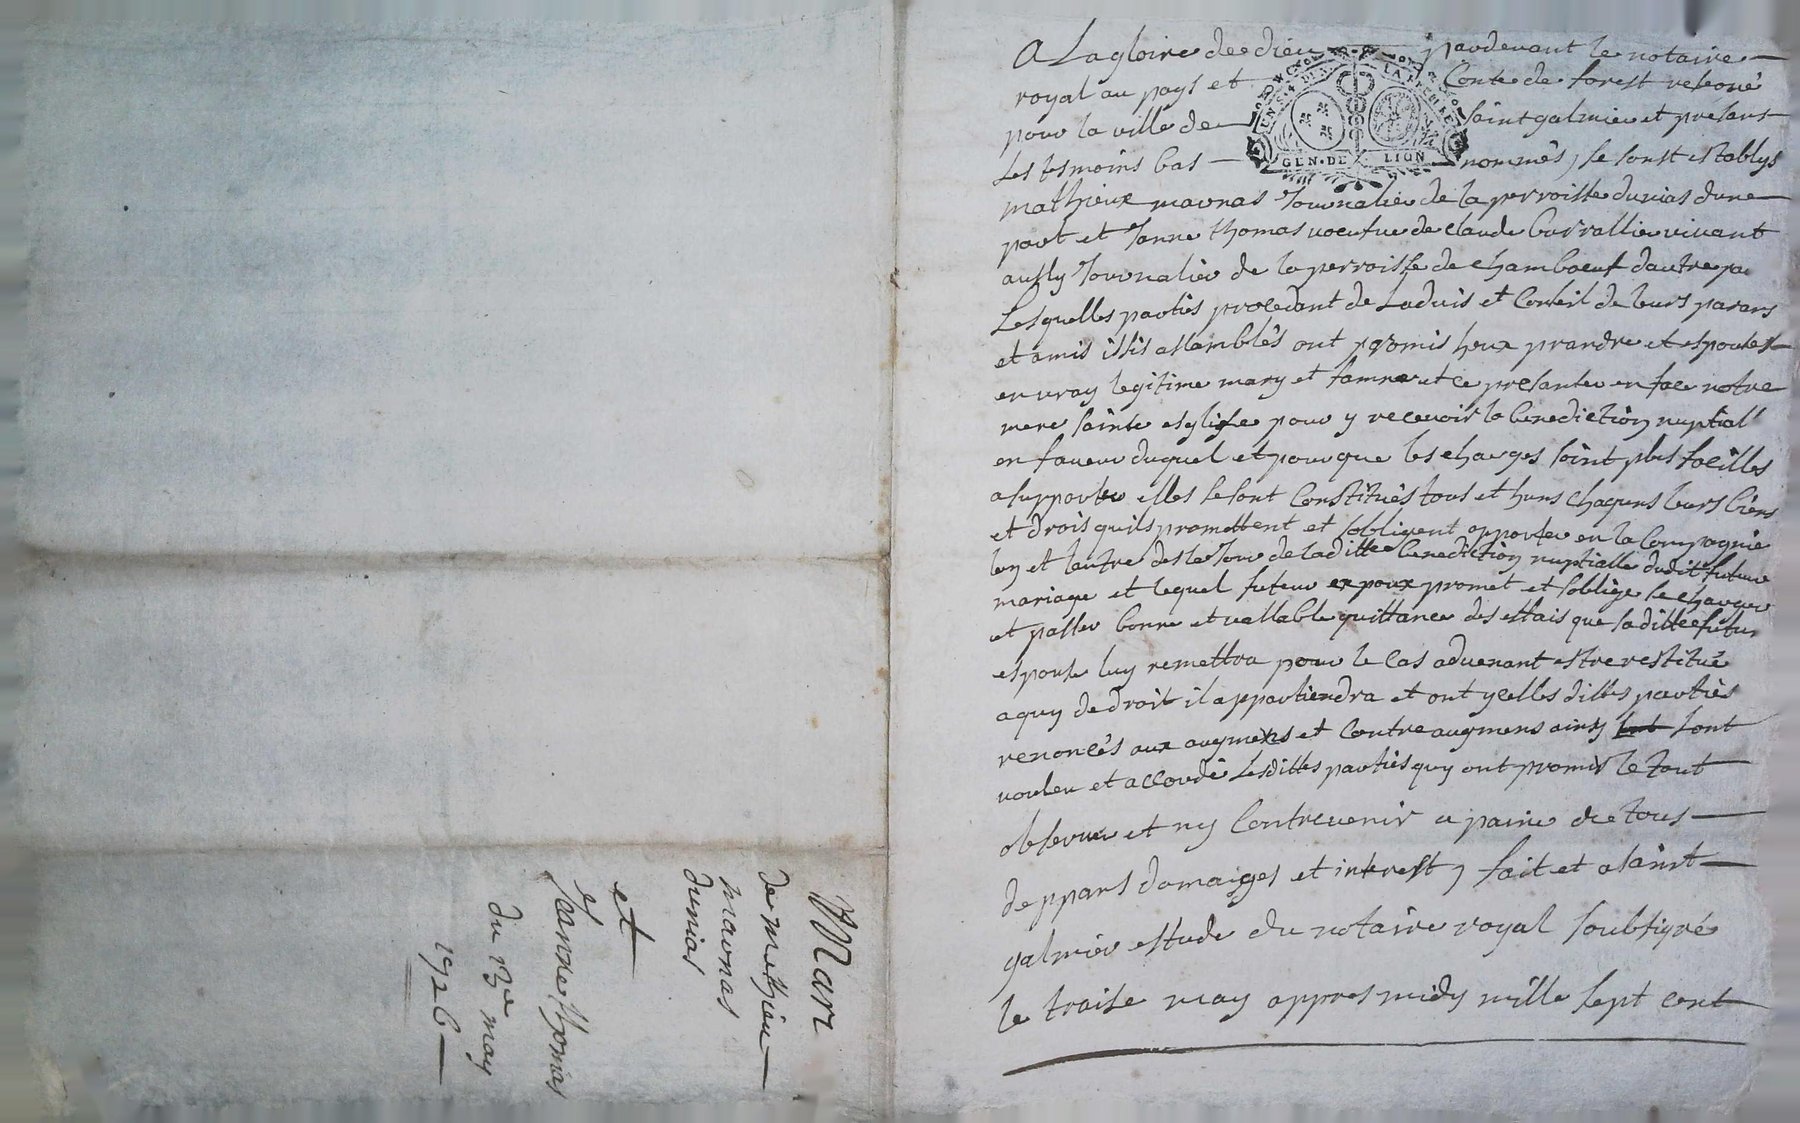 Mari
de methieu
mavnas
dunias
et
Jeanne thomas
du 13e may
1726
A La gloire de dieu pardevant le notaire
royal au pays et Conte de forest reservé
pour la ville de saint galmier et presans
Les tesmoins bas nommés, se sont establys
mathieux mavnas Journalier de la perroisse dunias dune
part et Janne thomas voeufve de claude barrallier vivant
aussy Journalier de la perroisse de chamboeuf dautre pa
Lesquelles parties procedant de Laduis et Conseil de leurs parans
et amis issis assamblés ont promis heux prandre et espouser
en vray legitime mary et famme et ce presanter en face notre
mere sainte esglise pour y recevoir la benediction nuptiall
en faveur duquel et pour que les charges soint plus facilles
a supporter elles se sont Constitués tous et huns chaquns leurs biens
et drois quils promettent et sobligent apporter en la Compagnie
lun et lautre des le Jour de laditte benediction nuptialle dudit futeur
mariage et lequel futeur expoux promet et soblige se charger
et passer bonne et vallable quittance des effais que saditte futur
espouse luy remettra pour le Cas advenant estre restitué
a quy de droit il appartiendra et ont ycelles dittes parties
renoncés aux augmens et Contre augmens ainsy sont
vouleu et accordé Lesdittes parties quy ont promis le tout
observer et ny Contrevenir a paine de tous
deppans domaiges et interest, fait et a saint
galmier estude du notaire royal soubsigné
le traise may appres midy mille sept cent
GEN·DE LION